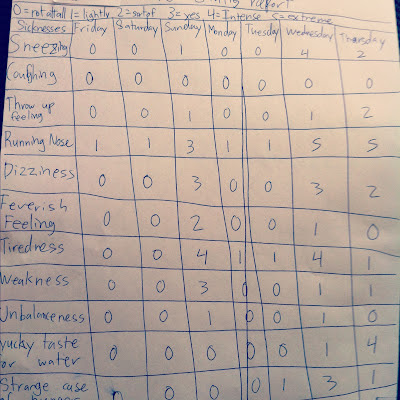 report
0=not at all 1=lightly 2=sort of 3=yes 4=Intense 5=extreme
Sicknesses Friday Saturday Sunday Monday Tuesday Wednesday Thursday
Sneezing 0 0 1 0 0 4 2
Coughing 0 0 0 0 0 0 0
Throw up
feeling 0 0 1 0 0 1 2
Running Nose 1 1 3 1 1 5 5
Dizziness 0 0 3 0 0 3 2
Feverish
Feeling 0 0 2 0 0 1 0
Tiredness 0 0 4 1 1 4 1
Weakness 0 0 3 0 0 1 1
Unbalanceness 0 0 1 0 0 1 0
Yucky taste
for water 0 0 0 0 0 1 4
Strange case 0 0 0 0 1 3 1
of